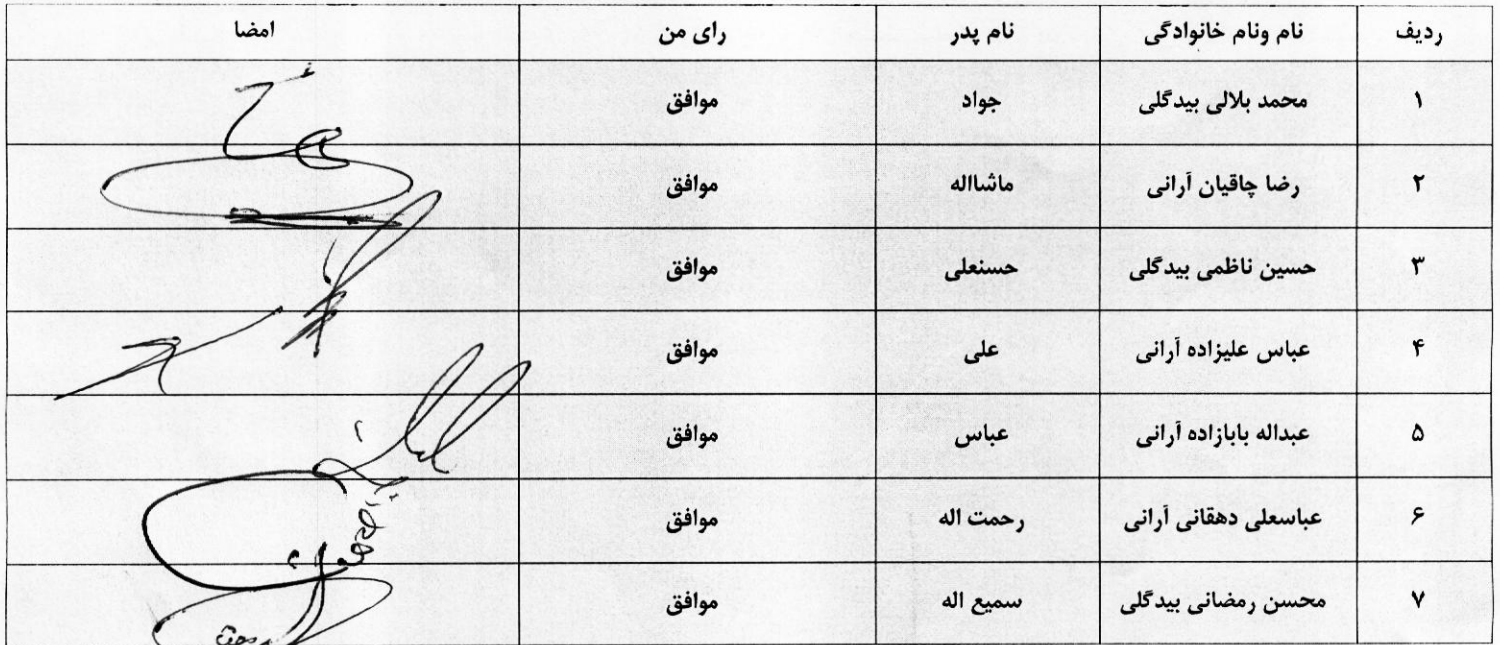 ردیف نام ونام خانوادگی نام پدر رای من امضا
۱ محمد بلالی بیدگلی جواد موافق
۲ رضا چاقیان آرانی ماشااله موافق
۳ حسین ناظمی بیدگلی حسنعلی موافق
۴ عباس علیزاده آرانی علی موافق
۵ عبداله بابازاده آرانی عباس موافق
۶ عباسعلی دهقانی آرانی رحمت اله موافق
۷ محسن رمضانی بیدگلی سمیع اله موافق